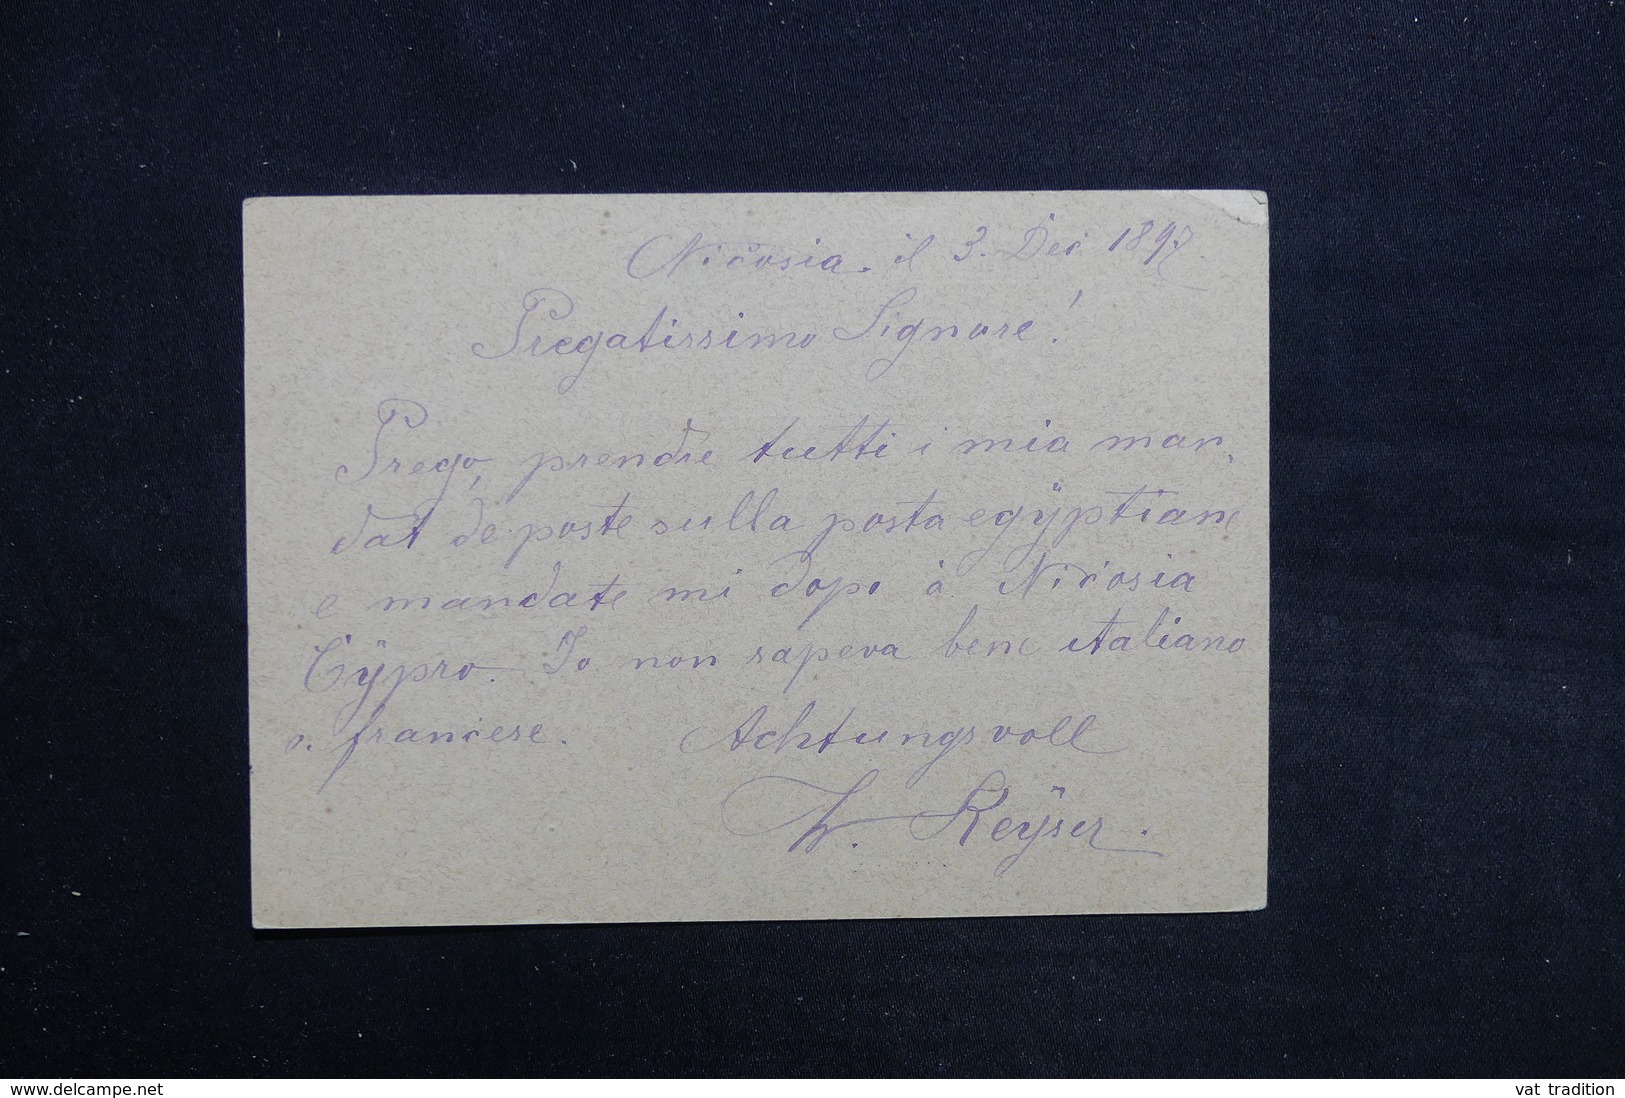 Nicosia. il 3. Dec 1897
Pregatissimo Signore!
Prego, prendre tutti i mia man-
dat de poste sulla posta egÿptiane
e mandate mi dopo à Nicosia
Cÿpro. Io non sapeva bene italiano
o. francese. Achtungsvoll
W. Keÿser.
www.delcampe.net
vat tradition